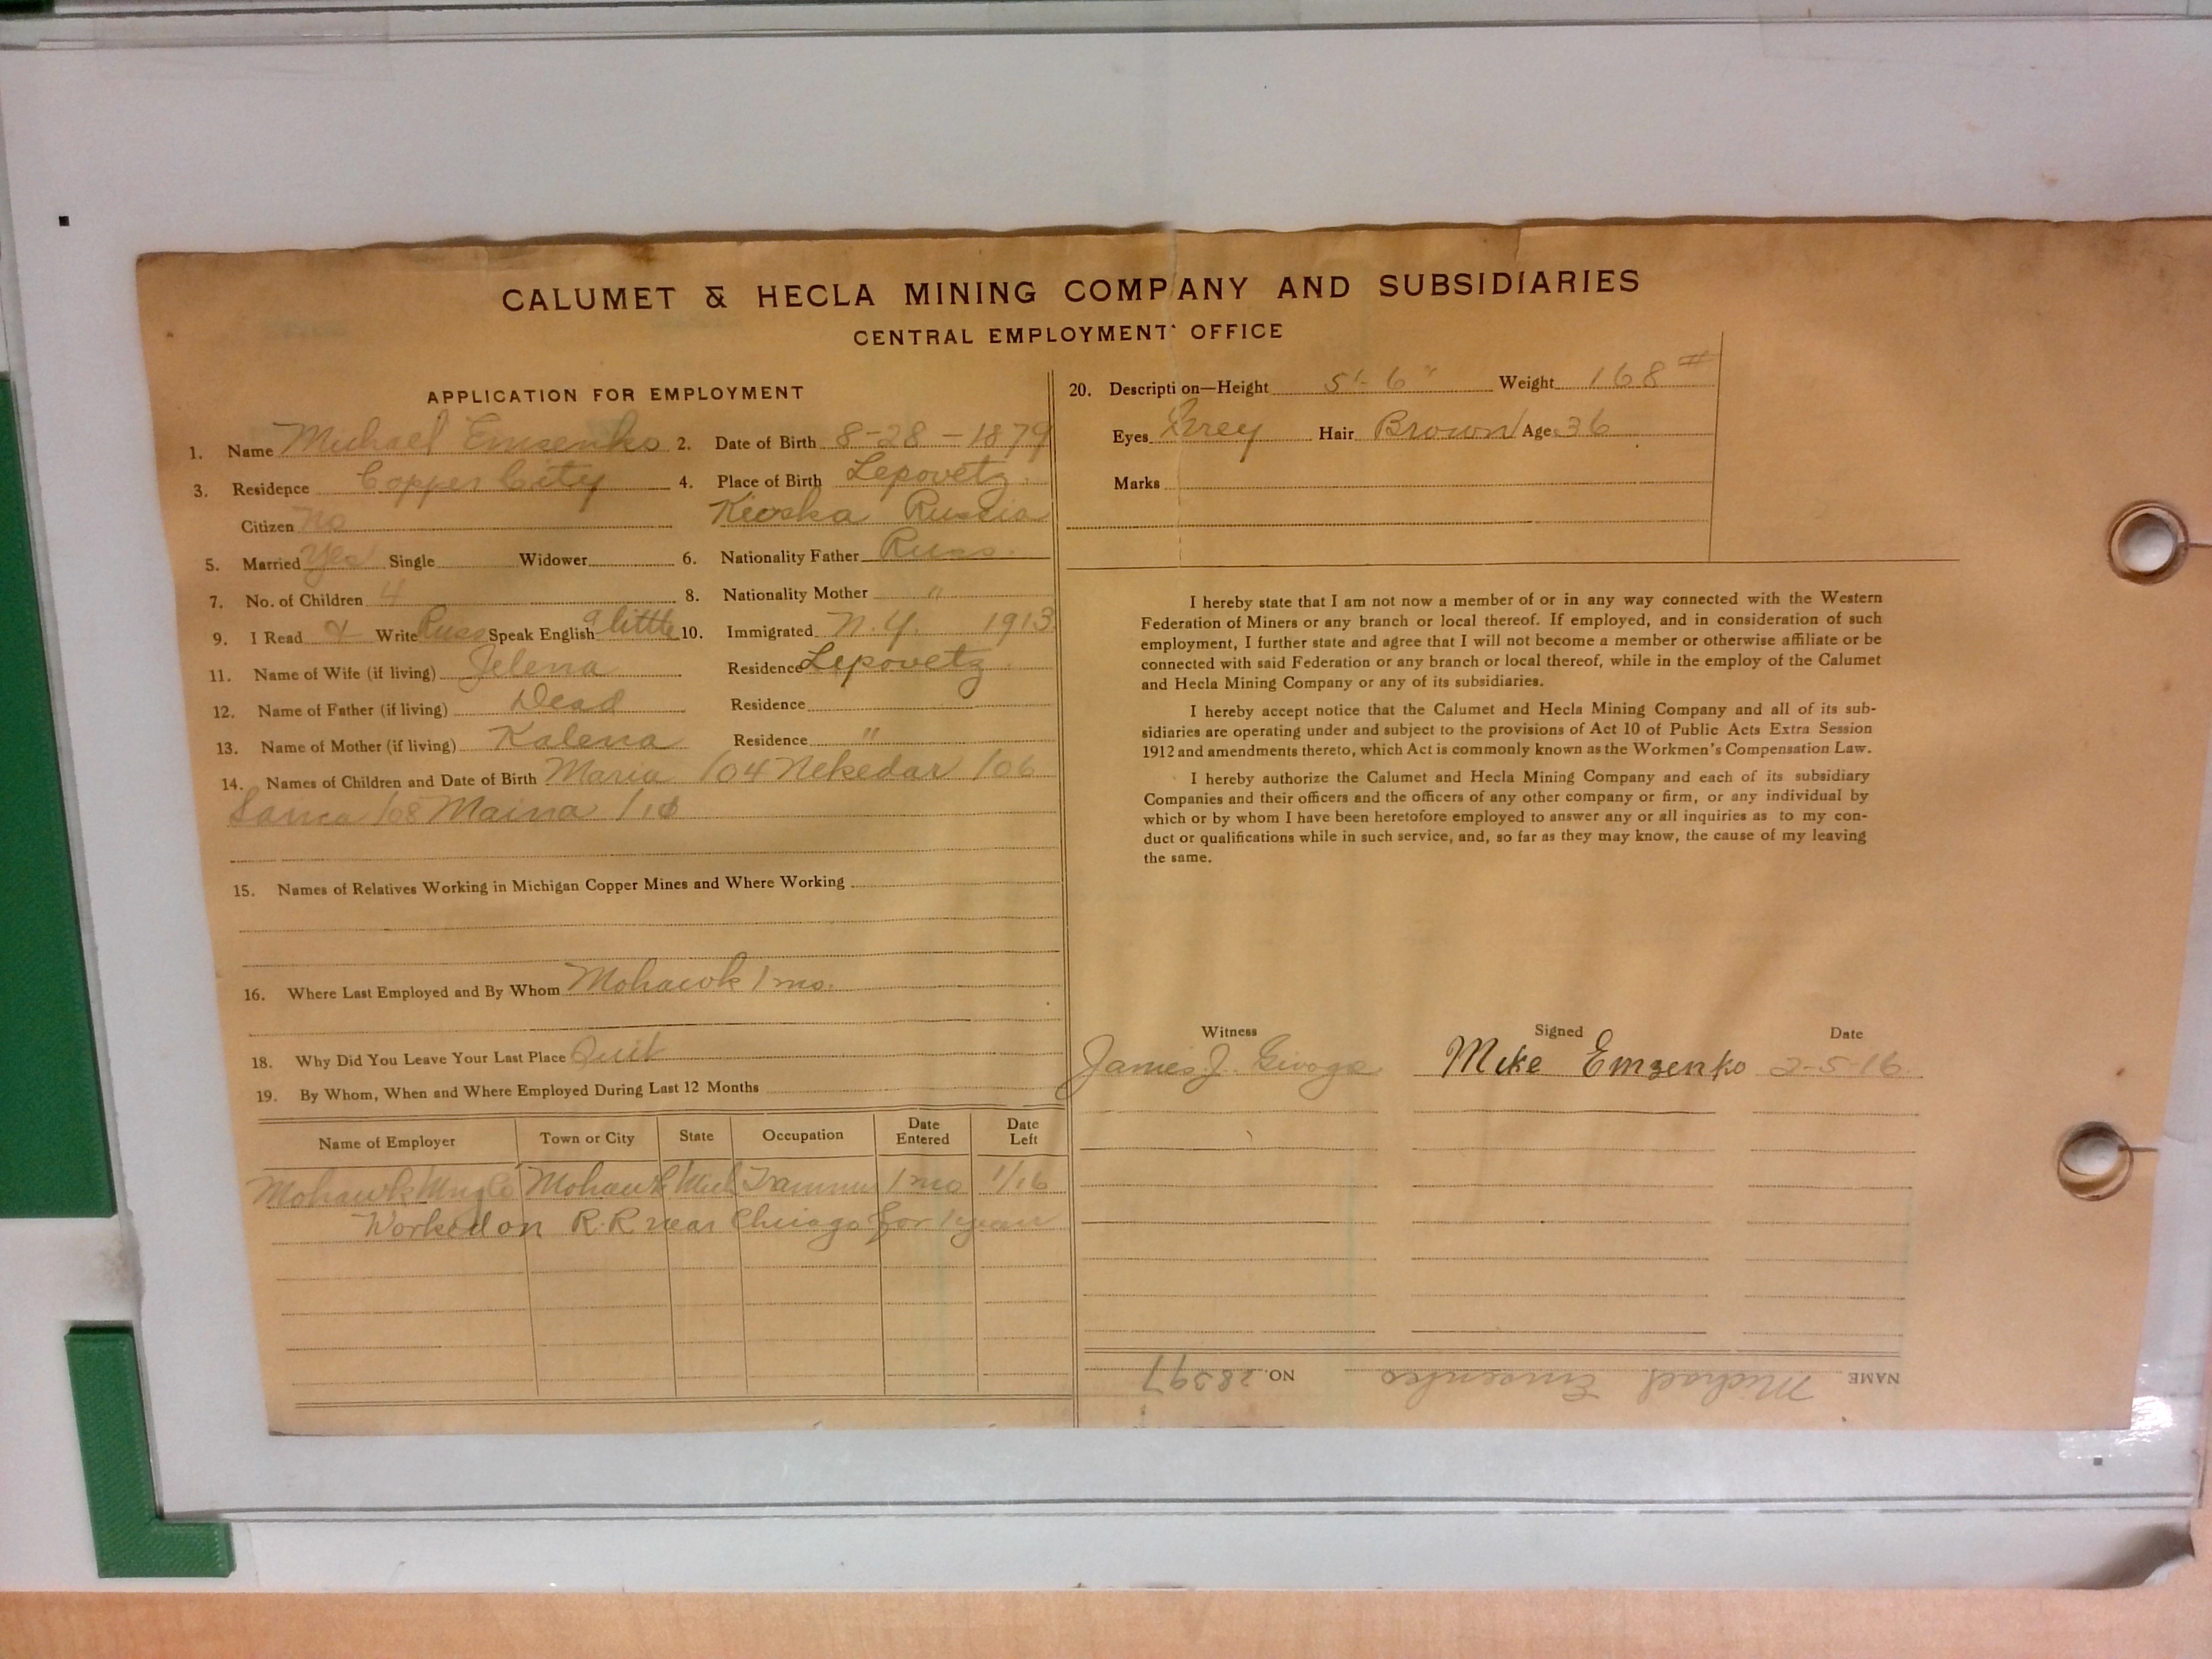 CALUMET & HECLA MINING COMPANY AND SUBSIDIARIES
CENTRAL EMPLOYMENT OFFICE
APPLICATION FOR EMPLOYMENT
1. Name Michael Emsenko 2. Date of Birth 8-28-1879
3. Residence Copper City 4. Place of Birth Lepovetz
Citizen No Kieska Russia
5. Married Yes Single Widower 6. Nationality Father Russ.
7. No. of Children 4 8. Nationality Mother "
9. I Read & Write Russ Speak English a little 10. Immigrated N.Y. 1913
11. Name of Wife (if living) Jelena Residence Lepovetz
12. Name of Father (if living) Dead Residence
13. Name of Mother (if living) Kalena Residence "
14. Names of Children and Date of Birth Maria /04 Nekedar /06
/08 Maina /10
15. Names of Relatives Working in Michigan Copper Mines and Where Working
16. Where Last Employed and By Whom Mohawk 1 mo.
18. Why Did You Leave Your Last Place Quit
19. By Whom, When and Where Employed During Last 12 Months
Name of Employer Town or City State Occupation Date Entered Date Left
Mohawk Mng Co Mohawk Mich Trammer 1 mo 1/16
Worked on R.R near Chicago for 1 year
20. Description—Height 5'-6" Weight 168#
Eyes Grey Hair Brown Age 36
Marks
I hereby state that I am not now a member of or in any way connected with the Western
Federation of Miners or any branch or local thereof. If employed, and in consideration of such
employment, I further state and agree that I will not become a member or otherwise affiliate or be
connected with said Federation or any branch or local thereof, while in the employ of the Calumet
and Hecla Mining Company or any of its subsidiaries.
I hereby accept notice that the Calumet and Hecla Mining Company and all of its sub-
sidiaries are operating under and subject to the provisions of Act 10 of Public Acts Extra Session
1912 and amendments thereto, which Act is commonly known as the Workmen's Compensation Law.
I hereby authorize the Calumet and Hecla Mining Company and each of its subsidiary
Companies and their officers and the officers of any other company or firm, or any individual by
which or by whom I have been heretofore employed to answer any or all inquiries as to my con-
duct or qualifications while in such service, and, so far as they may know, the cause of my leaving
the same.
Witness Signed Date
James J. Mike Emzenko 2-5-16
NAME Michael Emsenko NO. 28397